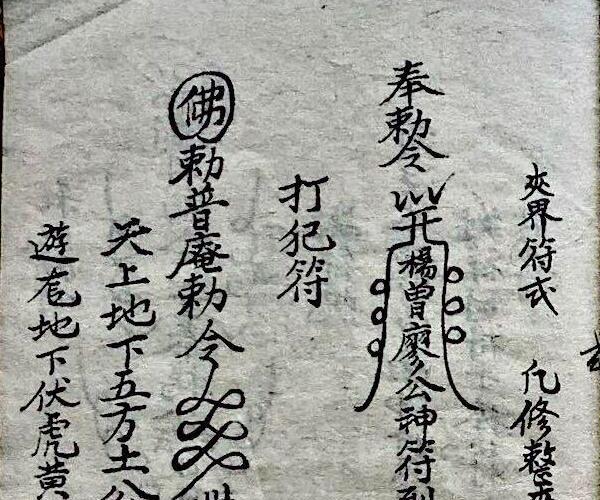 夾界符式 凡修整
奉勅令 楊曾廖公神符到
打犯符
佛勅普庵勅令
天上地下五方土公
遊奄地下伏虎黄